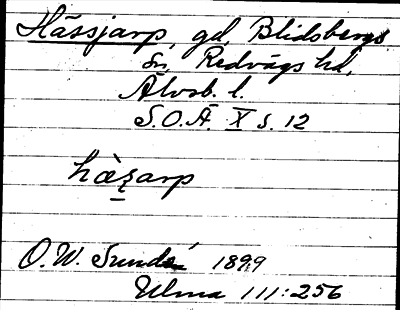 Hässjarp, gd, Blidsbergs
sn, Redvägs hd,
Älvsb. l.
S.O.Ä. X s. 12
O.W. Sundén 1899
Ulma 111:256